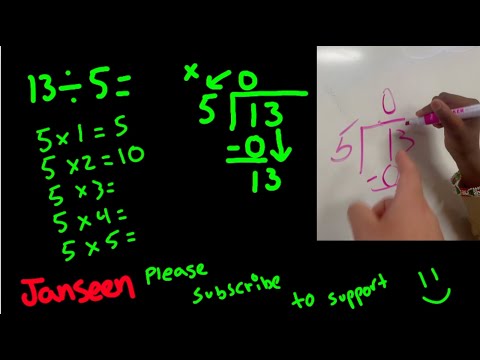 13÷5=
5×1=5
5×2=10
5×3=
5×4=
5×5=
x 0
5 13
-0
13
0
5 13
-0
Janseen please subscribe to support